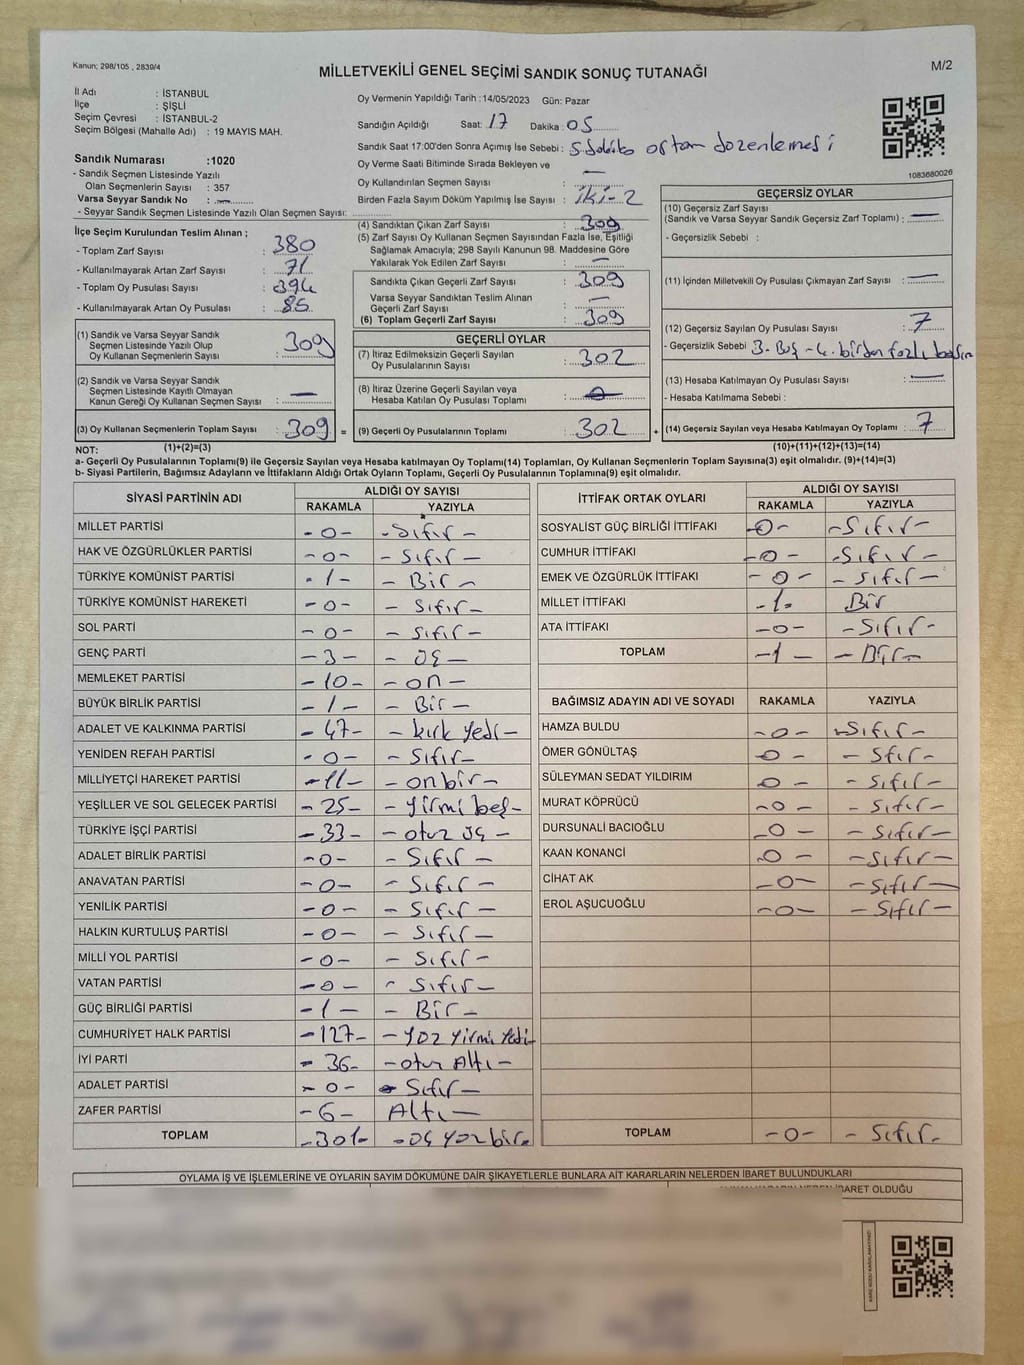 Kanun; 298/105 , 2839/4
MİLLETVEKİLİ GENEL SEÇİMİ SANDIK SONUÇ TUTANAĞI
M/2
İl Adı : İSTANBUL
İlçe : ŞİŞLİ
Seçim Çevresi : İSTANBUL-2
Seçim Bölgesi (Mahalle Adı) : 19 MAYIS MAH.
Oy Vermenin Yapıldığı Tarih : 14/05/2023 Gün: Pazar
Sandığın Açıldığı Saat: 17 Dakika : 05
Sandık Saat 17:00'den Sonra Açımış İse Sebebi : 5 dakika ortam düzenlemesi
Oy Verme Saati Bitiminde Sırada Bekleyen ve
Oy Kullandırılan Seçmen Sayısı : —
Birden Fazla Sayım Döküm Yapılmış İse Sayısı : iki-2
1083680026
Sandık Numarası :1020
- Sandık Seçmen Listesinde Yazılı
Olan Seçmenlerin Sayısı : 357
Varsa Seyyar Sandık No : —
- Seyyar Sandık Seçmen Listesinde Yazılı Olan Seçmen Sayısı:
İlçe Seçim Kurulundan Teslim Alınan ;
- Toplam Zarf Sayısı : 380
- Kullanılmayarak Artan Zarf Sayısı : 71
- Toplam Oy Pusulası Sayısı : 394
- Kullanılmayarak Artan Oy Pusulası : 85
(1) Sandık ve Varsa Seyyar Sandık
Seçmen Listesinde Yazılı Olup
Oy Kullanan Seçmenlerin Sayısı : 309
(2) Sandık ve Varsa Seyyar Sandık
Seçmen Listesinde Kayıtlı Olmayan
Kanun Gereği Oy Kullanan Seçmen Sayısı : —
(3) Oy Kullanan Seçmenlerin Toplam Sayısı : 309 =
(4) Sandıktan Çıkan Zarf Sayısı : 309
(5) Zarf Sayısı Oy Kullanan Seçmen Sayısından Fazla İse, Eşitliği
Sağlamak Amacıyla; 298 Sayılı Kanunun 98. Maddesine Göre
Yakılarak Yok Edilen Zarf Sayısı : —
Sandıkta Çıkan Geçerli Zarf Sayısı : 309
Varsa Seyyar Sandıktan Teslim Alınan
Geçerli Zarf Sayısı : —
(6) Toplam Geçerli Zarf Sayısı : 309
GEÇERLİ OYLAR
(7) İtiraz Edilmeksizin Geçerli Sayılan
Oy Pusulalarının Sayısı : 302
(8) İtiraz Üzerine Geçerli Sayılan veya
Hesaba Katılan Oy Pusulası Toplamı : 0
(9) Geçerli Oy Pusulalarının Toplamı : 302 +
GEÇERSİZ OYLAR
(10) Geçersiz Zarf Sayısı
(Sandık ve Varsa Seyyar Sandık Geçersiz Zarf Toplamı) : —
- Geçersizlik Sebebi :
(11) İçinden Milletvekili Oy Pusulası Çıkmayan Zarf Sayısı : —
(12) Geçersiz Sayılan Oy Pusulası Sayısı : 7
- Geçersizlik Sebebi : 3-Boş-4. birden fazla basım
(13) Hesaba Katılmayan Oy Pusulası Sayısı : —
- Hesaba Katılmama Sebebi :
(14) Geçersiz Sayılan veya Hesaba Katılmayan Oy Toplamı : 7
NOT: (1)+(2)=(3) (10)+(11)+(12)+(13)=(14)
a- Geçerli Oy Pusulalarının Toplamı(9) ile Geçersiz Sayılan veya Hesaba katılmayan Oy Toplamı(14) Toplamları, Oy Kullanan Seçmenlerin Toplam Sayısına(3) eşit olmalıdır. (9)+(14)=(3)
b- Siyasi Partilerin, Bağımsız Adayların ve İttifakların Aldığı Ortak Oyların Toplamı, Geçerli Oy Pusulalarının Toplamına(9) eşit olmalıdır.
SİYASİ PARTİNİN ADI ALDIĞI OY SAYISI
RAKAMLA YAZIYLA
MİLLET PARTİSİ -0- -Sıfır-
HAK VE ÖZGÜRLÜKLER PARTİSİ -0- -Sıfır-
TÜRKİYE KOMÜNİST PARTİSİ -1- -Bir-
TÜRKİYE KOMÜNİST HAREKETİ -0- -Sıfır-
SOL PARTİ -0- -Sıfır-
GENÇ PARTİ -3- -üç-
MEMLEKET PARTİSİ -10- -on-
BÜYÜK BİRLİK PARTİSİ -1- -Bir-
ADALET VE KALKINMA PARTİSİ -47- -kırk yedi-
YENİDEN REFAH PARTİSİ -0- -Sıfır-
MİLLİYETÇİ HAREKET PARTİSİ -11- -onbir-
YEŞİLLER VE SOL GELECEK PARTİSİ -25- -yirmi beş-
TÜRKİYE İŞÇİ PARTİSİ -33- -otuz üç-
ADALET BİRLİK PARTİSİ -0- -Sıfır-
ANAVATAN PARTİSİ -0- -Sıfır-
YENİLİK PARTİSİ -0- -Sıfır-
HALKIN KURTULUŞ PARTİSİ -0- -Sıfır-
MİLLİ YOL PARTİSİ -0- -Sıfır-
VATAN PARTİSİ -0- -Sıfır-
GÜÇ BİRLİĞİ PARTİSİ -1- -Bir-
CUMHURİYET HALK PARTİSİ -127- -yüz yirmi yedi-
İYİ PARTİ -36- -otuz Altı-
ADALET PARTİSİ -0- -Sıfır-
ZAFER PARTİSİ -6- Altı-
TOPLAM -301- -üç yüz bir-
İTTİFAK ORTAK OYLARI ALDIĞI OY SAYISI
RAKAMLA YAZIYLA
SOSYALİST GÜÇ BİRLİĞİ İTTİFAKI -0- -Sıfır-
CUMHUR İTTİFAKI -0- -Sıfır-
EMEK VE ÖZGÜRLÜK İTTİFAKI -0- -Sıfır-
MİLLET İTTİFAKI -1- Bir
ATA İTTİFAKI -0- -Sıfır-
TOPLAM -1- -Bir-
BAĞIMSIZ ADAYIN ADI VE SOYADI RAKAMLA YAZIYLA
HAMZA BULDU -0- -Sıfır-
ÖMER GÖNÜLTAŞ -0- -Sıfır-
SÜLEYMAN SEDAT YILDIRIM -0- -Sıfır-
MURAT KÖPRÜCÜ -0- -Sıfır-
DURSUNALİ BACIOĞLU -0- -Sıfır-
KAAN KONANCİ -0- -Sıfır-
CİHAT AK -0- -Sıfır-
EROL AŞUCUOĞLU -0- -Sıfır-
TOPLAM -0- -Sıfır-
OYLAMA İŞ VE İŞLEMLERİNE VE OYLARIN SAYIM DÖKÜMÜNE DAİR ŞİKAYETLERLE BUNLARA AİT KARARLARIN NELERDEN İBARET BULUNDUKLARI
İBARET OLDUĞU